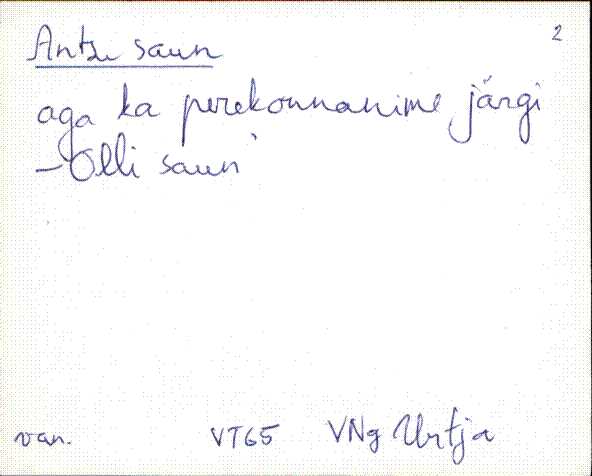 2
Antsu saun
aga ka perekonnanime järgi
– Olli saun'
van. VT65 VNg Urtja